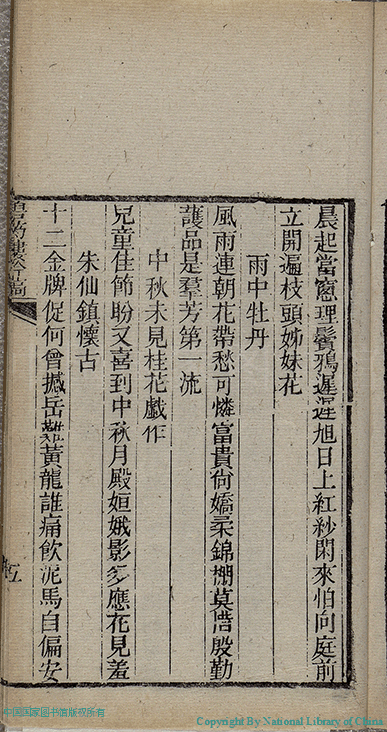 晨起當窻理鬢鴉遲遲旭日上紅紗閑來怕向庭前
立開遍枝頭姊妹花
雨中牡丹
風雨連朝花帶愁可憐富貴尙嬌柔錦棚莫惜殷勤
護品是羣芳第一流
中秋未見桂花戲作
兒童佳節盼又喜到中秋月殿姮娥影多應花見羞
朱仙鎮懷古
十二金牌促何曾撼岳難黃龍誰痛飲泥馬自偏安
中国国家图书馆版权所有
Copyright By National Library of China